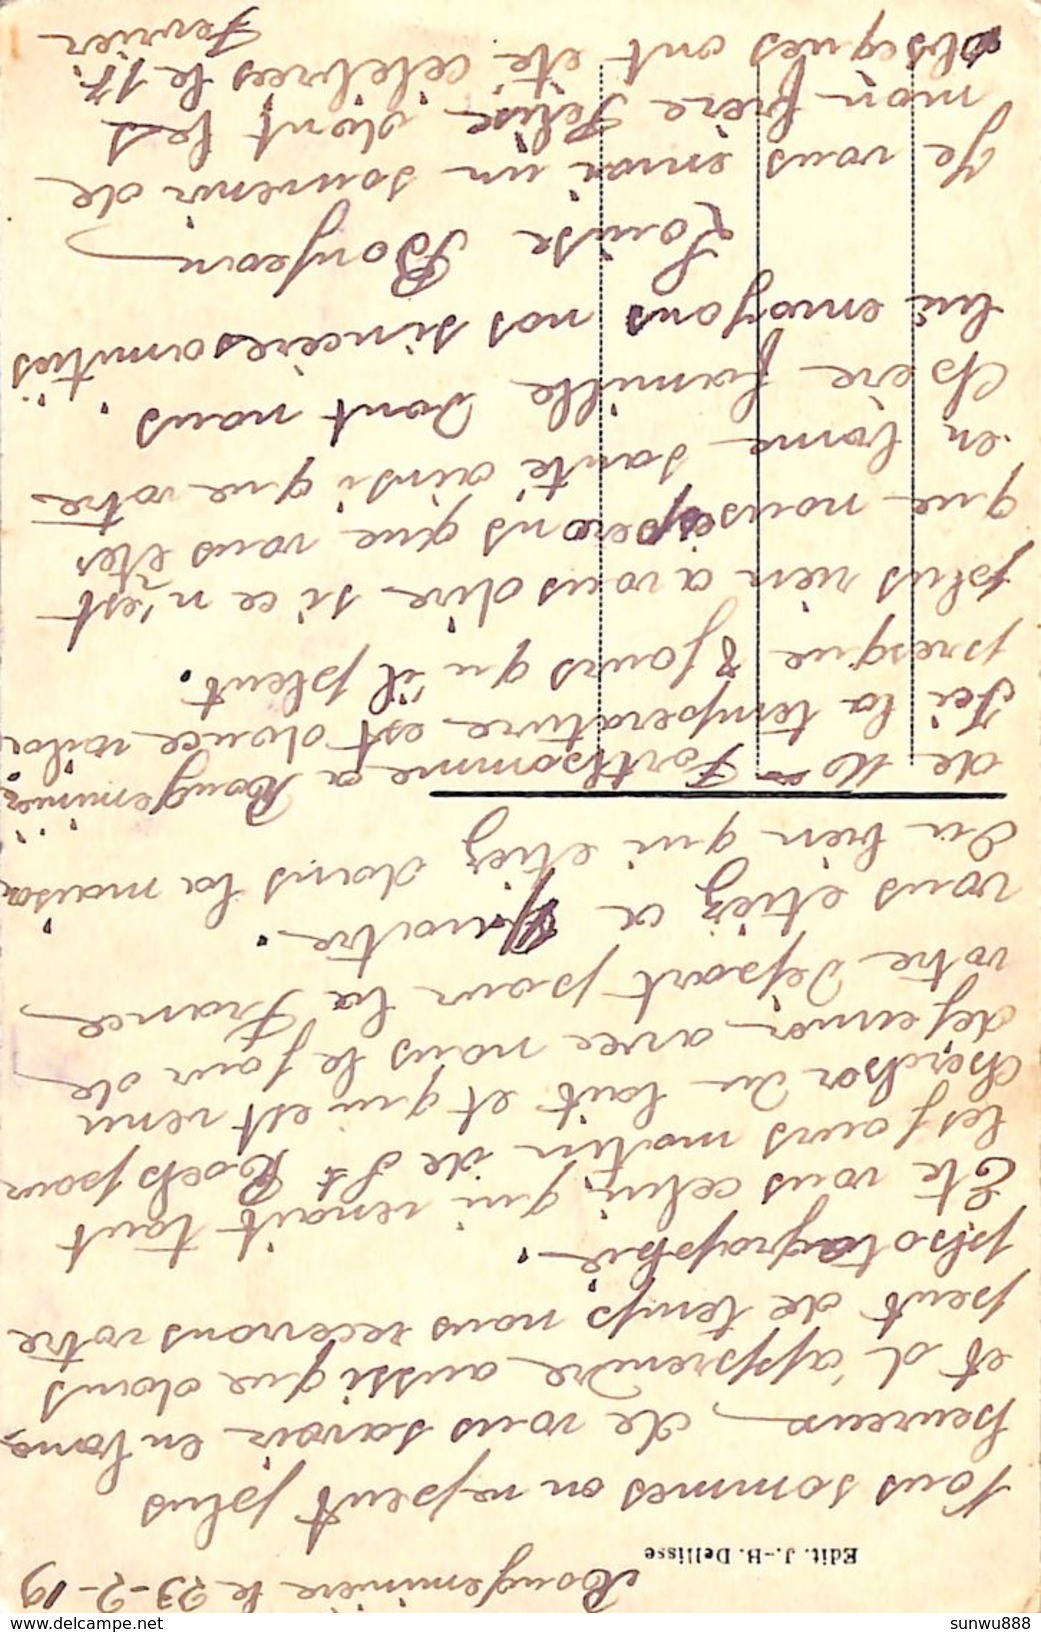 Rougeminière le 23-2-19
Edit. J.-B. Dellisse
Nous sommes on ne peut plus
heureux de vous savoir en bonne
et d'apprendre aussi que dans
peut de temps nous recevrons votre
photographie.
Ete vous celui qui venait tout
les jours matin de St Roch pour
chercher du lait et qui est venu
dejeunér avec nous le jour de
votre depart pour la France
vous etiez a quatre.
Ou bien qui etiez dans la maison
de Mo Forthomme a Rougeminière
Ici la temperature est douce voila
presque 8 jours qu'il pleut.
plus rien a vous dire si ce n'est
que nous esperons que vous etes
en bonne santé ainsi que votre
chère famille Dont nous
lui envoyons nos sincères amitiés
Louise Bonjean
Je vous envoi un souvenir de
mon frère Felise dont les
obseques ont eté célébrées le 15
Fevrier
sunwu888